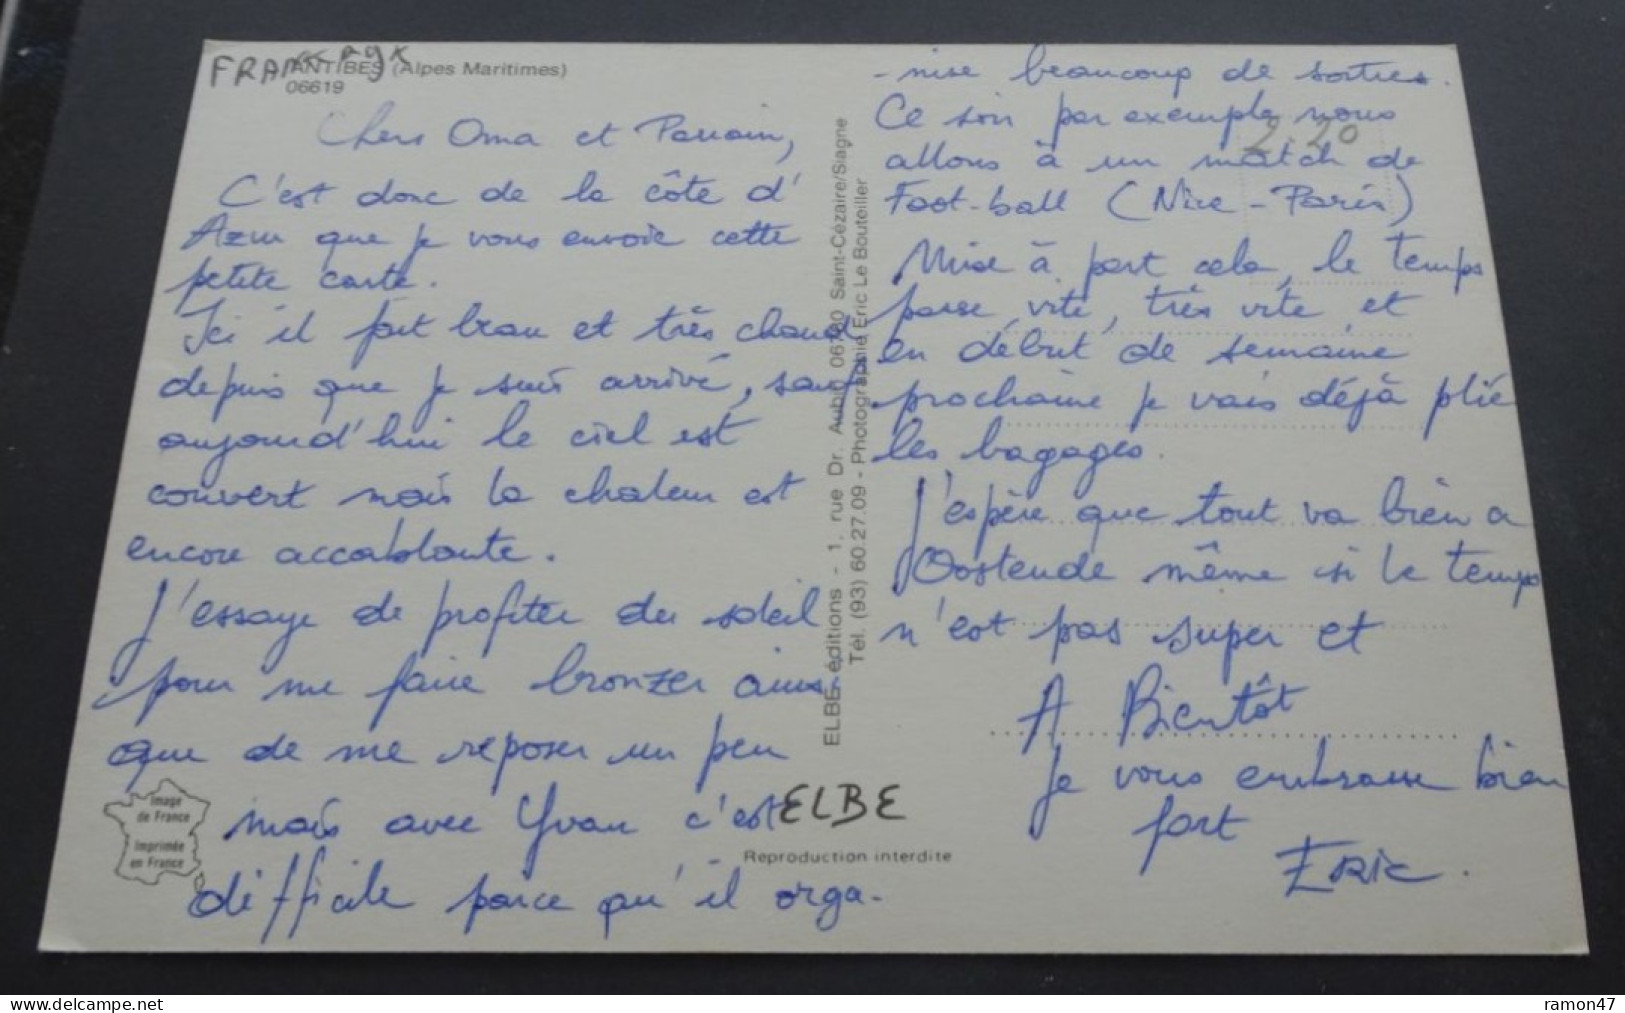 ANTIBES (Alpes Maritimes)
06619
Chers Oma et Parrain,
C'est donc de la côte d'
Azur que je vous envoie cette
petite carte.
Ici il fait beau et très chaud
depuis que je suis arrivé, sauf
aujourd'hui le ciel est
couvert mais la chaleur est
encore accablante.
J'essaye de profiter du soleil
pour me faire bronzer ainsi
que de me reposer un peu
mais avec Yvan c'est
difficile parce qu'il orga-
Image
de France
Imprimée
en France
ELBE éditions - 1, rue Dr. 06780 Saint-Cézaire/Siagne
Tél. (93) 60.27.09 - Photographie Eric Le Bouteiller
ELBE
Reproduction interdite
2.20
-nise beaucoup de sorties.
Ce soir par exemple, nous
allons à un match de
Foot-ball (Nice - Paris)
Mise à part cela, le temps
passe vite, très vite et
en début de semaine
prochaine je vais déjà plié
les bagages.
J'espère que tout va bien a
Oostende même si le temps
n'est pas super et
A Bientôt
Je vous embrasse bien
fort
ERIC.
ramon47
delcampe.net